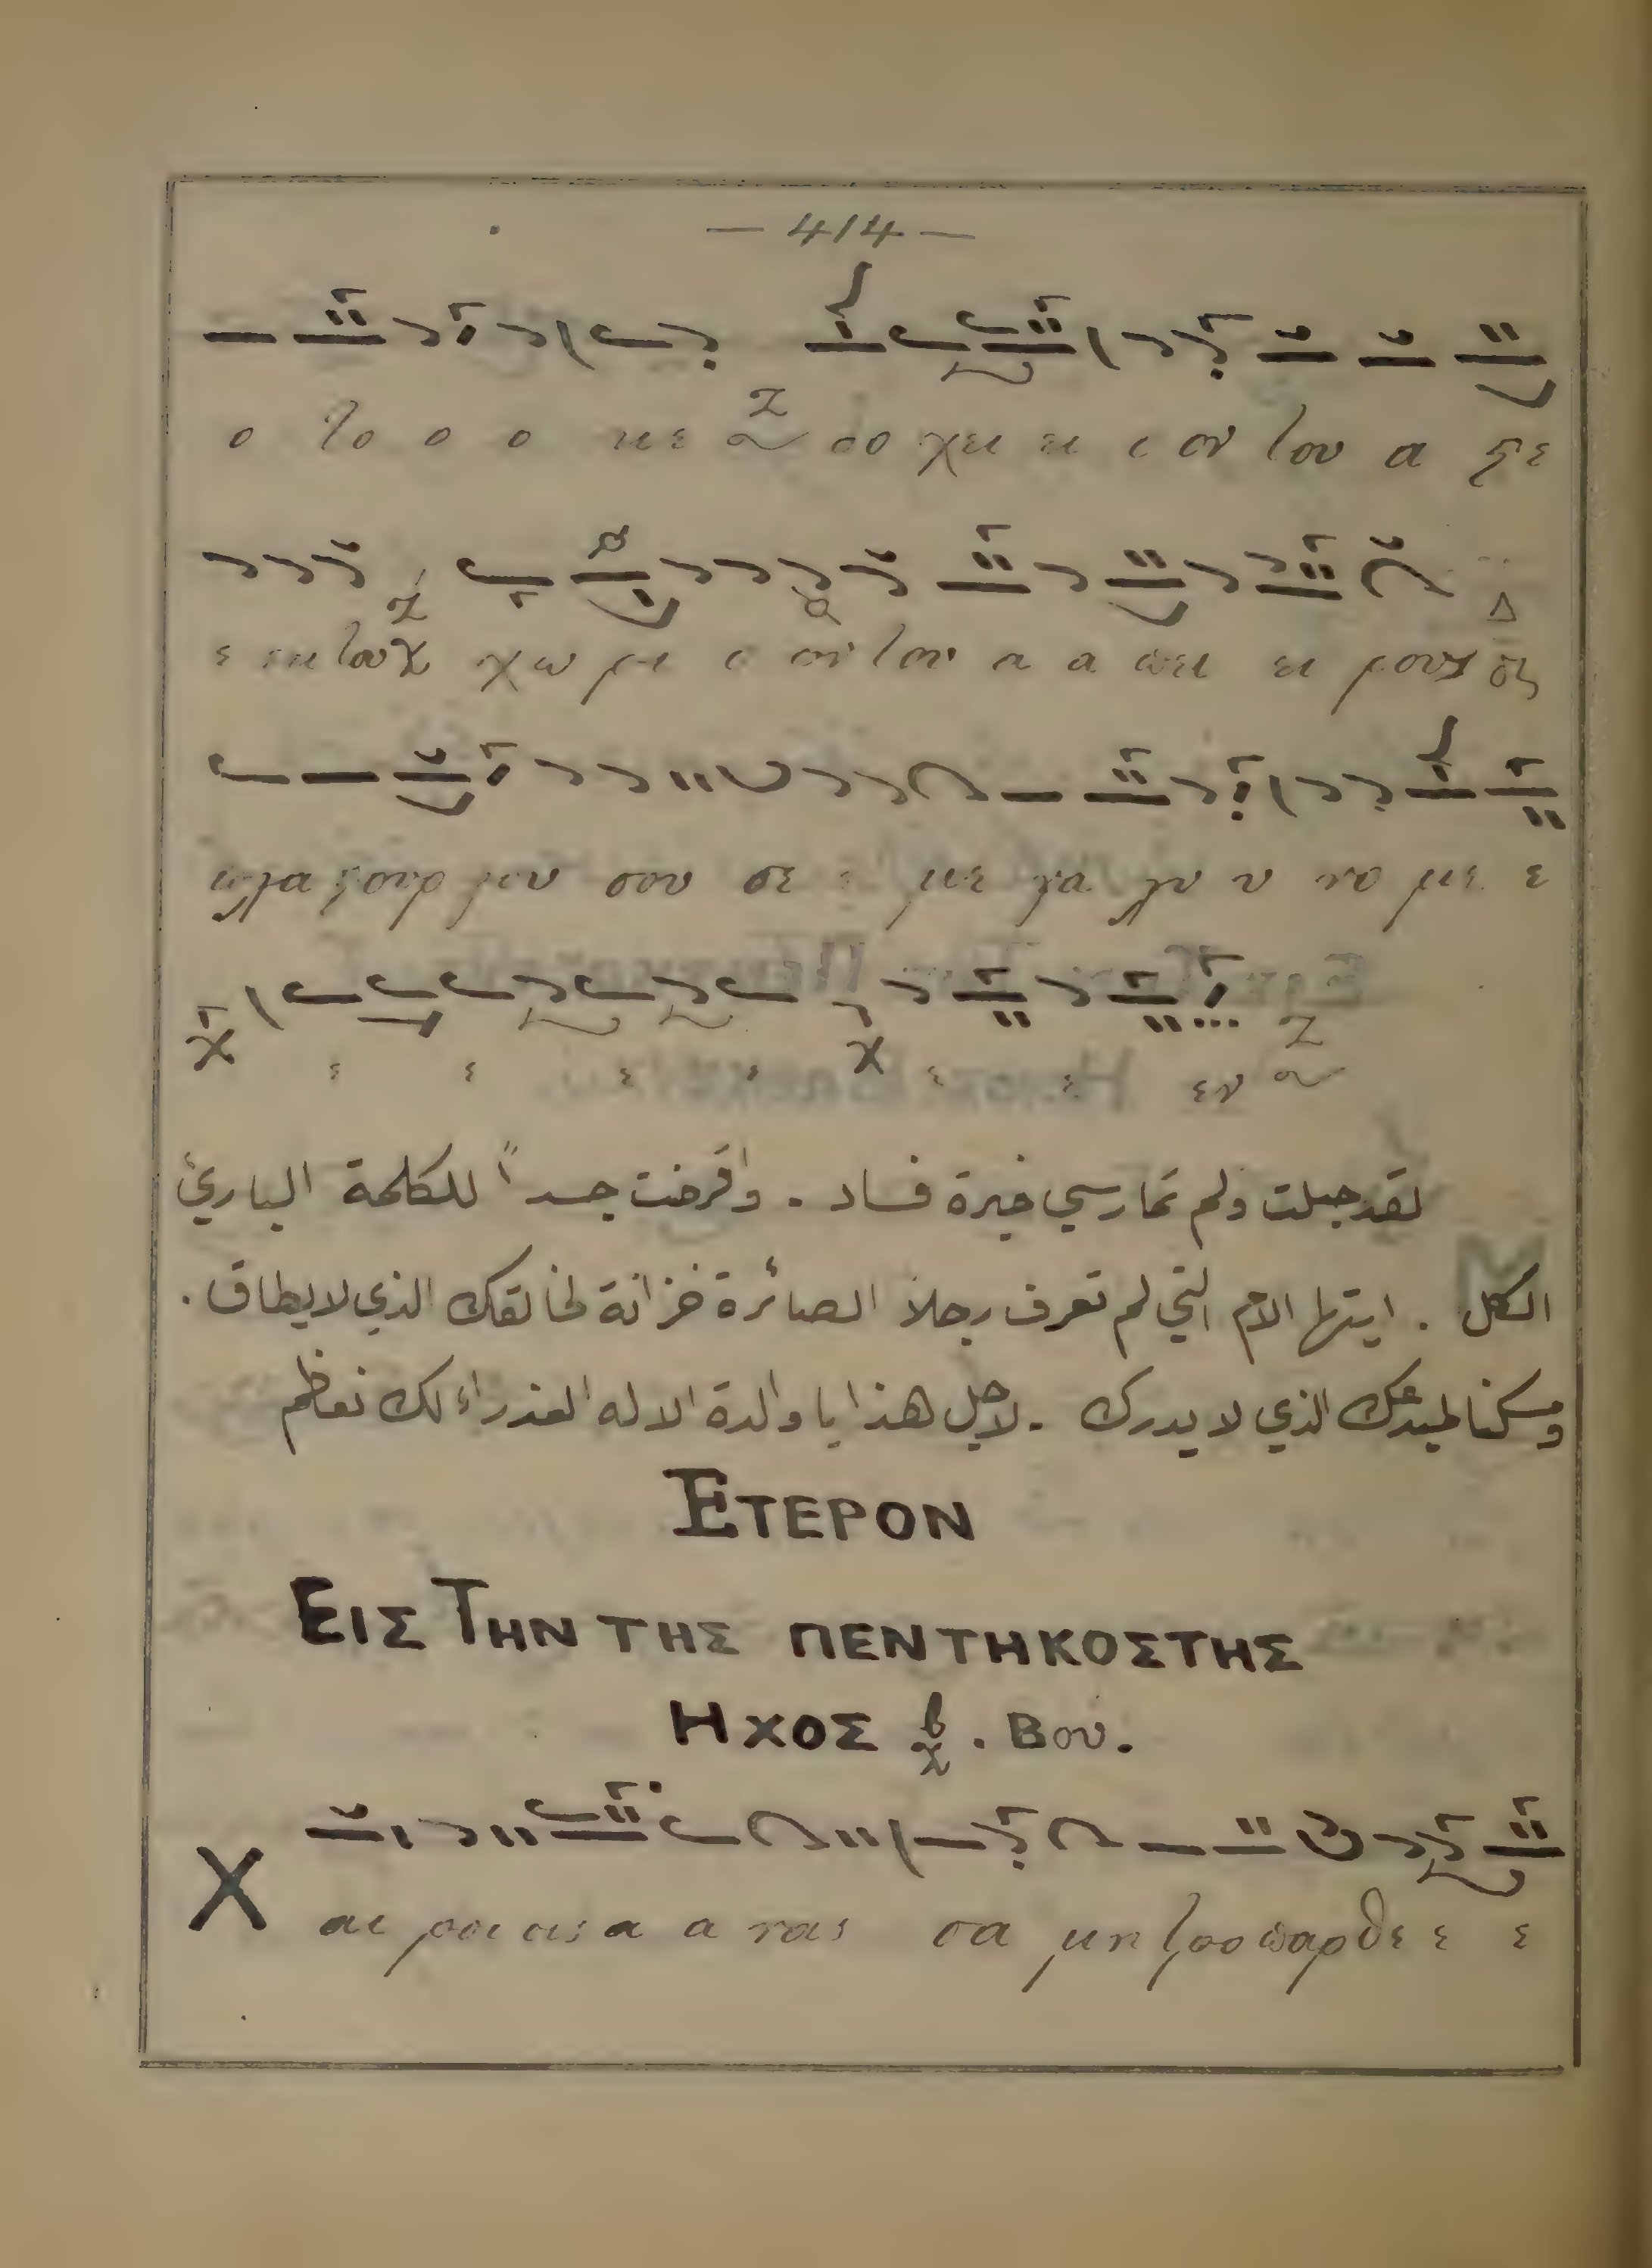 — 414 —
ο το ο ο κε δο χει ει ι ον του α στε
ε εκ του χω ρι ι ον του α α πει ει ρου
πλαστουρ γου σου σε ε με γα λυ υ νο με ε
ε ε ε ε ε ε εν
لقد حبلت ولم تمارسي خبرة فساد . واقرضت جسداً للكلمة البارئ
الكل . ايتها الام التي لم تعرف رجلاً الصائرة خزانة لخالقك الذي لا يطاق .
ومسكنا لمبدعك الذي لا يدرك . لاجل هذا يا والدة الاله العذراء لك نعظم
ΕΤΕΡΟΝ
ΕΙΣ ΤΗΝ ΤΗΣ ΠΕΝΤΗΚΟΣΤΗΣ
ΗΧΟΣ . Βου.
Χ αι ροι εις α α νας σα μη τρο παρθε ε ε